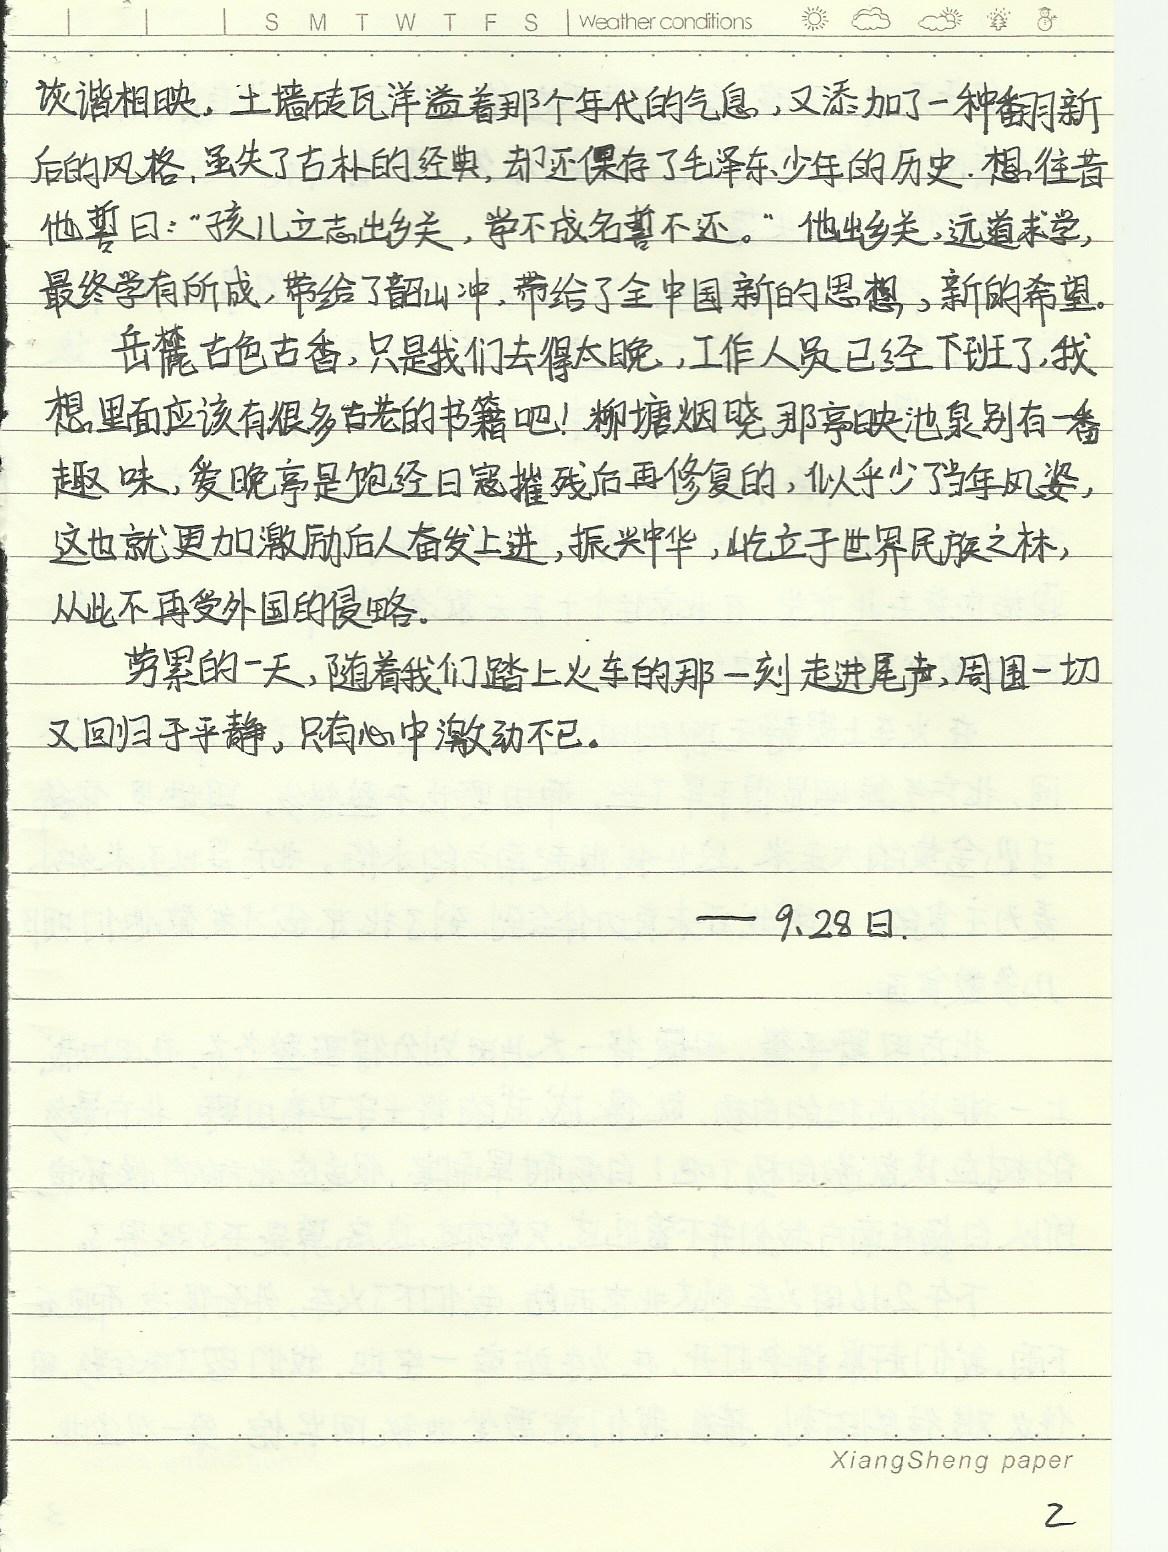 S M T W T F S Weather conditions
诙谐相映。土墙砖瓦洋溢着那个年代的气息，又添加了一种翻新
后的风格，虽失了古朴的经典，却还保存了毛泽东少年的历史．想往昔
他誓曰：“孩儿立志出乡关，学不成名誓不还。” 他出乡关，远道求学，
最终学有所成，带给了韶山冲，带给了全中国新的思想，新的希望。
岳麓古色古香，只是我们去得太晚，工作人员已经下班了，我
想里面应该有很多古老的书籍吧！柳塘烟晓 那亭映池泉别有一番
趣味，爱晚亭是饱经日寇摧残后再修复的，似乎少了当年风姿，
这也就更加激励后人奋发上进，振兴中华，屹立于世界民族之林，
从此不再受外国的侵略。
劳累的一天，随着我们踏上火车的那一刻走进尾声，周围一切
又回归于平静。只有心中激动不已。
—— 9.28日.
XiangSheng paper
2